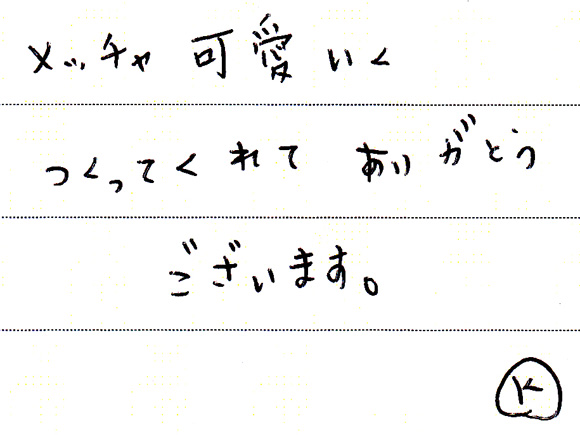 メッチャ 可愛いく
つくってくれて ありがとう
ございます。
K